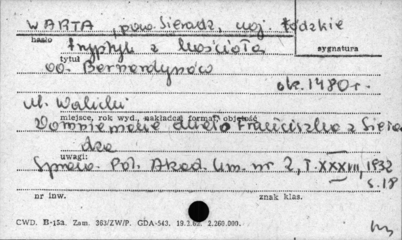 WARTA, pow. Sieradz, woj. Łódzkie
hasło
tryptyk z kościoła
sygnatura
tytuł
oo. Bernardynów
ok. 1480 r.
M. Walicki
miejsce, rok wyd., nakładca, format, objętość
Domniemane dzieło Franciszka z Siera
dza
uwagi:
Spraw. Pol. Akad. Um. nr 2, T. XXXVII, 1932
s. 18
nr inw.
znak klas.
CWD. B-12a. Zam. 363/ZW/P. GDA-543. 19.3.62. 2.260.000.